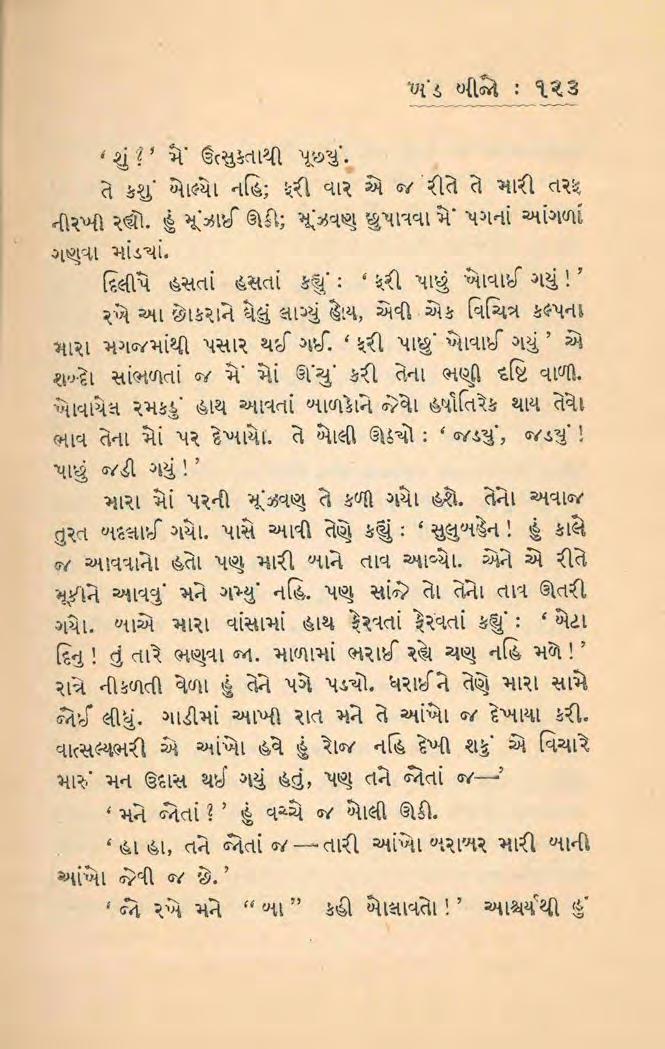 ખંડ બીજો : ૧૨૩
‘ શું ? ’ મેં ઉત્સુકતાથી પૂછયું.
તે કશું બોલ્યો નહિ; ફરી વાર એ જ રીતે તે મારી તરફ
નીરખી રહ્યો. હું મૂંઝાઈ ઊઠી; મૂંઝવણ છુપાવવા મેં પગનાં આંગળાં
ગણવા માંડયાં.
દિલીપે હસતાં હસતાં કહ્યું : ‘ ફરી પાછું ખોવાઈ ગયું ! ’
રખે આ છોકરાને ઘેલું લાગ્યું હોય, એવી એક વિચિત્ર કલ્પના
મારા મગજમાંથી પસાર થઈ ગઈ. ‘ ફરી પાછું ખોવાઈ ગયું ’ એ
શબ્દો સાંભળતાં જ મેં મોં ઊંચું કરી તેના ભણી દૃષ્ટિ વાળી.
ખોવાયેલ રમકડું હાથ આવતાં બાળકોને જેવો હર્ષાતિરેક થાય તેવો
ભાવ તેના મોં પર દેખાયો. તે બોલી ઊઠયો : ‘ જડયું, જડયું !
પાછું જડી ગયું ! ’
મારા મોં પરની મૂંઝવણ તે કળી ગયો હશે. તેનો અવાજ
તુરત બદલાઈ ગયો. પાસે આવી તેણે કહ્યું : ‘ સુલુબહેન ! હું કાલે
જ આવવાનો હતો પણ મારી બાને તાવ આવ્યો. એને એ રીતે
મૂકીને આવવું મને ગમ્યું નહિ. પણ સાંજે તો તેનો તાવ ઊતરી
ગયો. બાએ મારા વાંસામાં હાથ ફેરવતાં ફેરવતાં કહ્યું : ‘ બેટા
દિનુ ! તું તારે ભણવા જા. માળામાં ભરાઈ રહ્યે ચણ નહિ મળે ! ’
રાત્રે નીકળતી વેળા હું તેને પગે પડયો. ધરાઈને તેણે મારા સામે
જોઈ લીધું. ગાડીમાં આખી રાત મને તે આંખો જ દેખાયા કરી.
વાત્સલ્યભરી એ આંખો હવે હું રોજ નહિ દેખી શકું એ વિચારે
મારું મન ઉદાસ થઈ ગયું હતું, પણ તને જોતાં જ—’
‘ મને જોતાં ? ’ હું વચ્ચે જ બોલી ઊઠી.
‘ હા હા, તને જોતાં જ — તારી આંખો બરાબર મારી બાની
આંખો જેવી જ છે. ’
‘ જો રખે મને “ બા ” કહી બોલાવતો ! ’ આશ્ચર્યથી હું